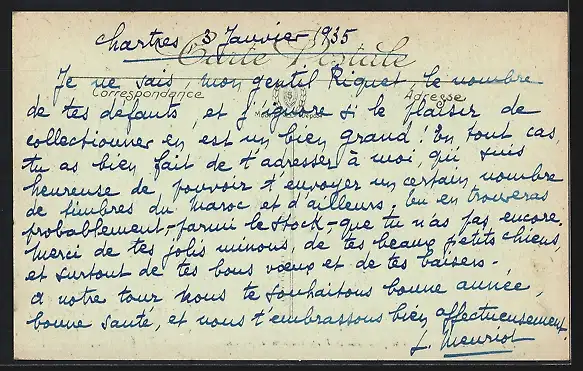 Chartres 3 Janvier 1935
Carte Postale
Je ne sais, mon gentil Riquet le nombre
Correspondance
Adresse
de tes défauts, et j'ignore si le plaisir de
collectionner en est un bien grand! En tout cas,
tu as bien fait de t'adresser à moi, qui suis
heureuse de pouvoir t'envoyer un certain nombre
de timbres du Maroc et d'ailleurs. Tu en trouveras
probablement, parmi le stock, que tu n'as pas encore
merci de tes jolis minous, de tes beaux petits chiens,
et surtout de tes bons vœux et de tes baisers.
A notre tour nous te souhaitons bonne année,
bonne santé, et nous t'embrassons bien affectueusement.
J. Meuriot